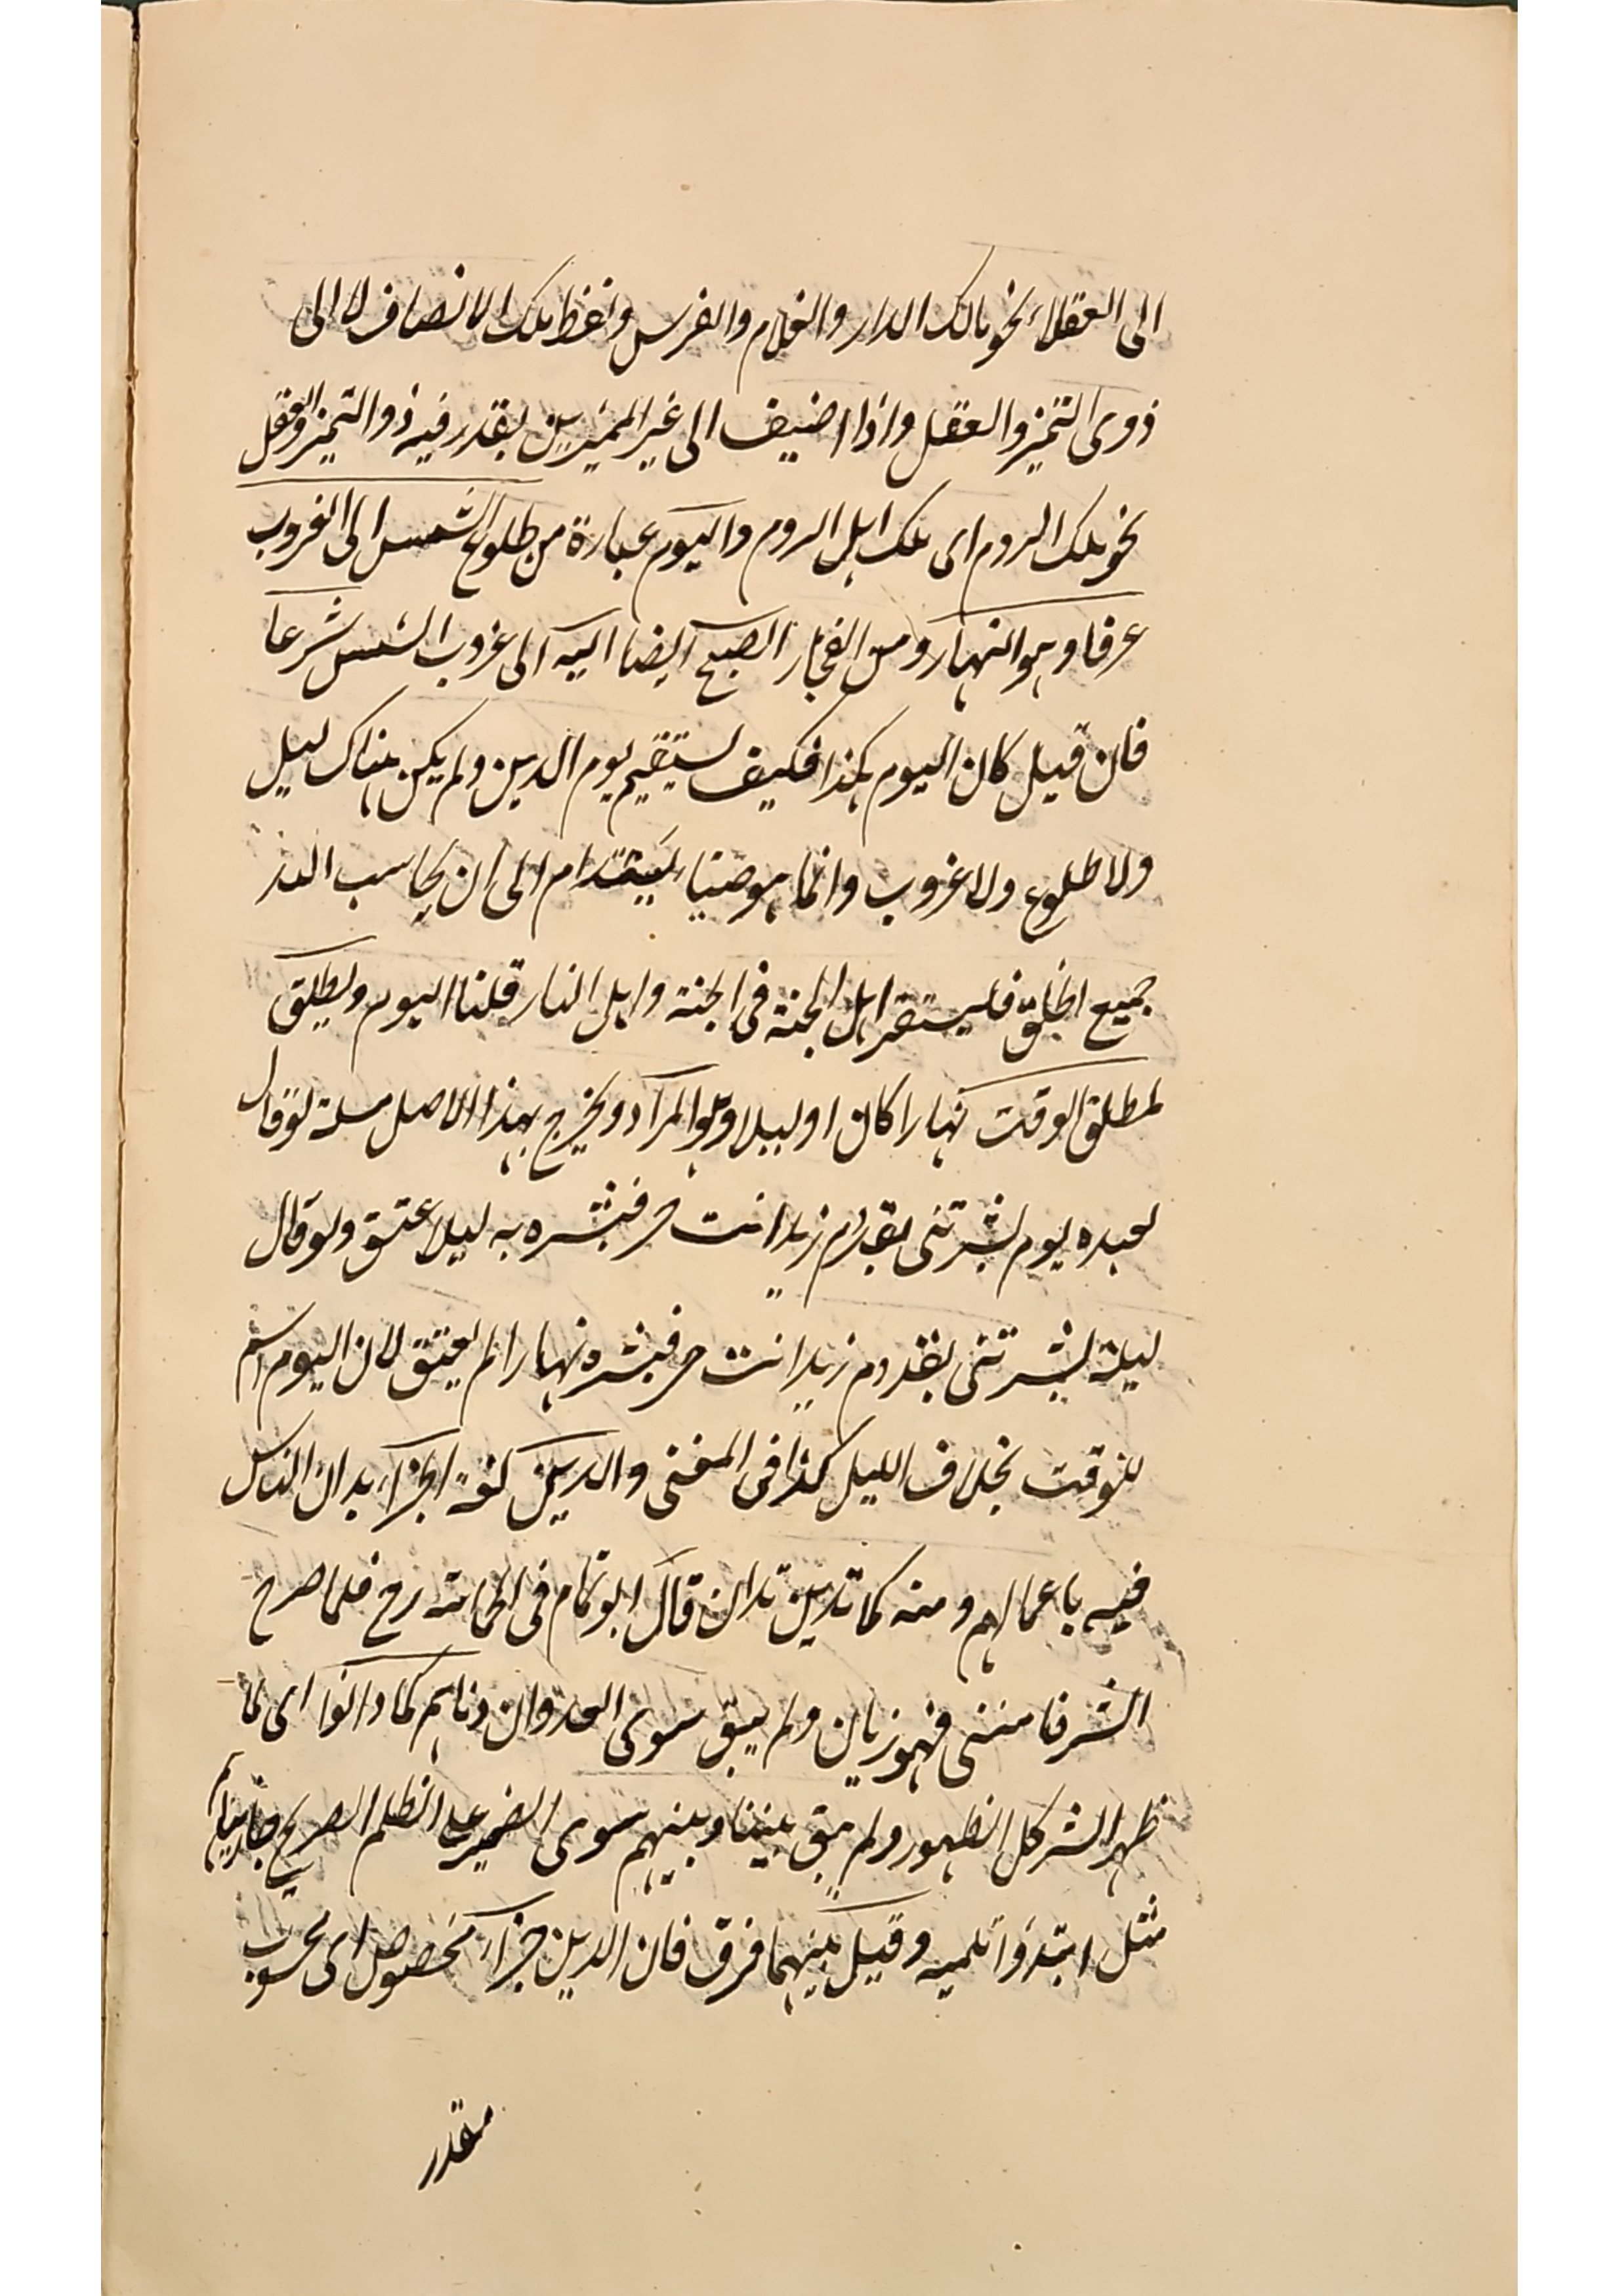 الى العقلاء نحو مالك الدار والغلام والفرس ولفظ ملك الا نصاف لا الى
ذوى التميز والعقل واذا اضيف الى غير المميزين يقدر فيه ذو التميز والعقل
نحو ملك الروم اى ملك اهل الروم واليوم عبارة من طلوع الشمس الى الغروب
عرفا وهو النهار ومن الفجار الصبح ايضا اليه الى غروب الشمس شرعا
فان قيل كان اليوم هكذا فكيف يستقيم يوم الدين ولم يكن هناك ليل
ولا طلوع ولا غروب وانما هو ضياء يستدام الى ان يحاسب الله
جميع الخلق فليستقر اهل الجنة فى الجنة واهل النار قلنا اليوم ويطلق
لمطلق الوقت نهارا كان او ليلا وهو المراد ويخرج بهذا الاصل مسئلة لو قال
لعبده يوم بشرتنى بقدوم زيد انت حر فبشره به ليلا عتق ولو قال
ليلة بشرتنى بقدوم زيد انت حر فبشره نهارا لم يعتق لان اليوم اسم
للوقت بخلاف الليل كذا فى المغنى والدين لغة الجزاء يدان الناس
فيه باعمالهم ومنه كما تدين تدان قال ابو تمام فى الحماسة رح فلما صرح
الشر فامسى فهو زيان ولم يبق سوى العدوان دناهم كما دانوا اى لما
ظهر الشر كل الظهور ولم يبق بيننا وبينهم سوى الضمير على الظلم الصريح جازيناهم
مثل ابتدؤا وقيل بينهما فرق فان الدين جزاء مخصوص اى محسوب
مقدر